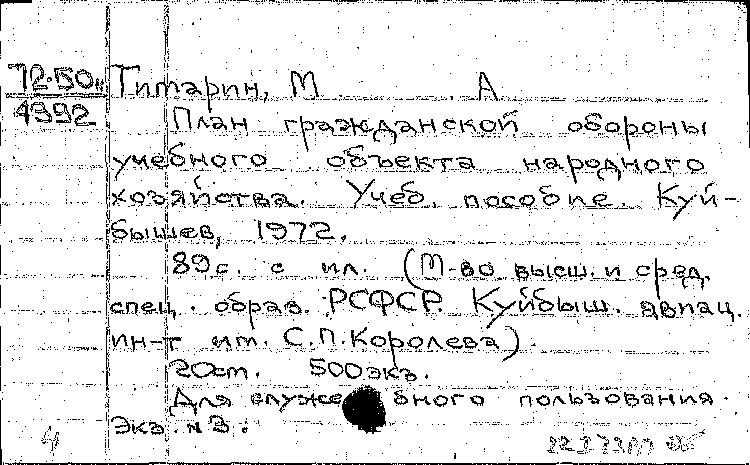 72-50
4992
Титарин, М А
План гражданской обороны
учебного объекта народного
хозяйства. Учеб. пособие. Куй-
бышев, 1972.
89с. с ил. (М-во высш. и сред.
спец. образ. РСФСР. Куйбыш. авиац.
ин-т им. С.П.Королева).
20см. 500экз.
Для служебного пользования.
Экз. №3.